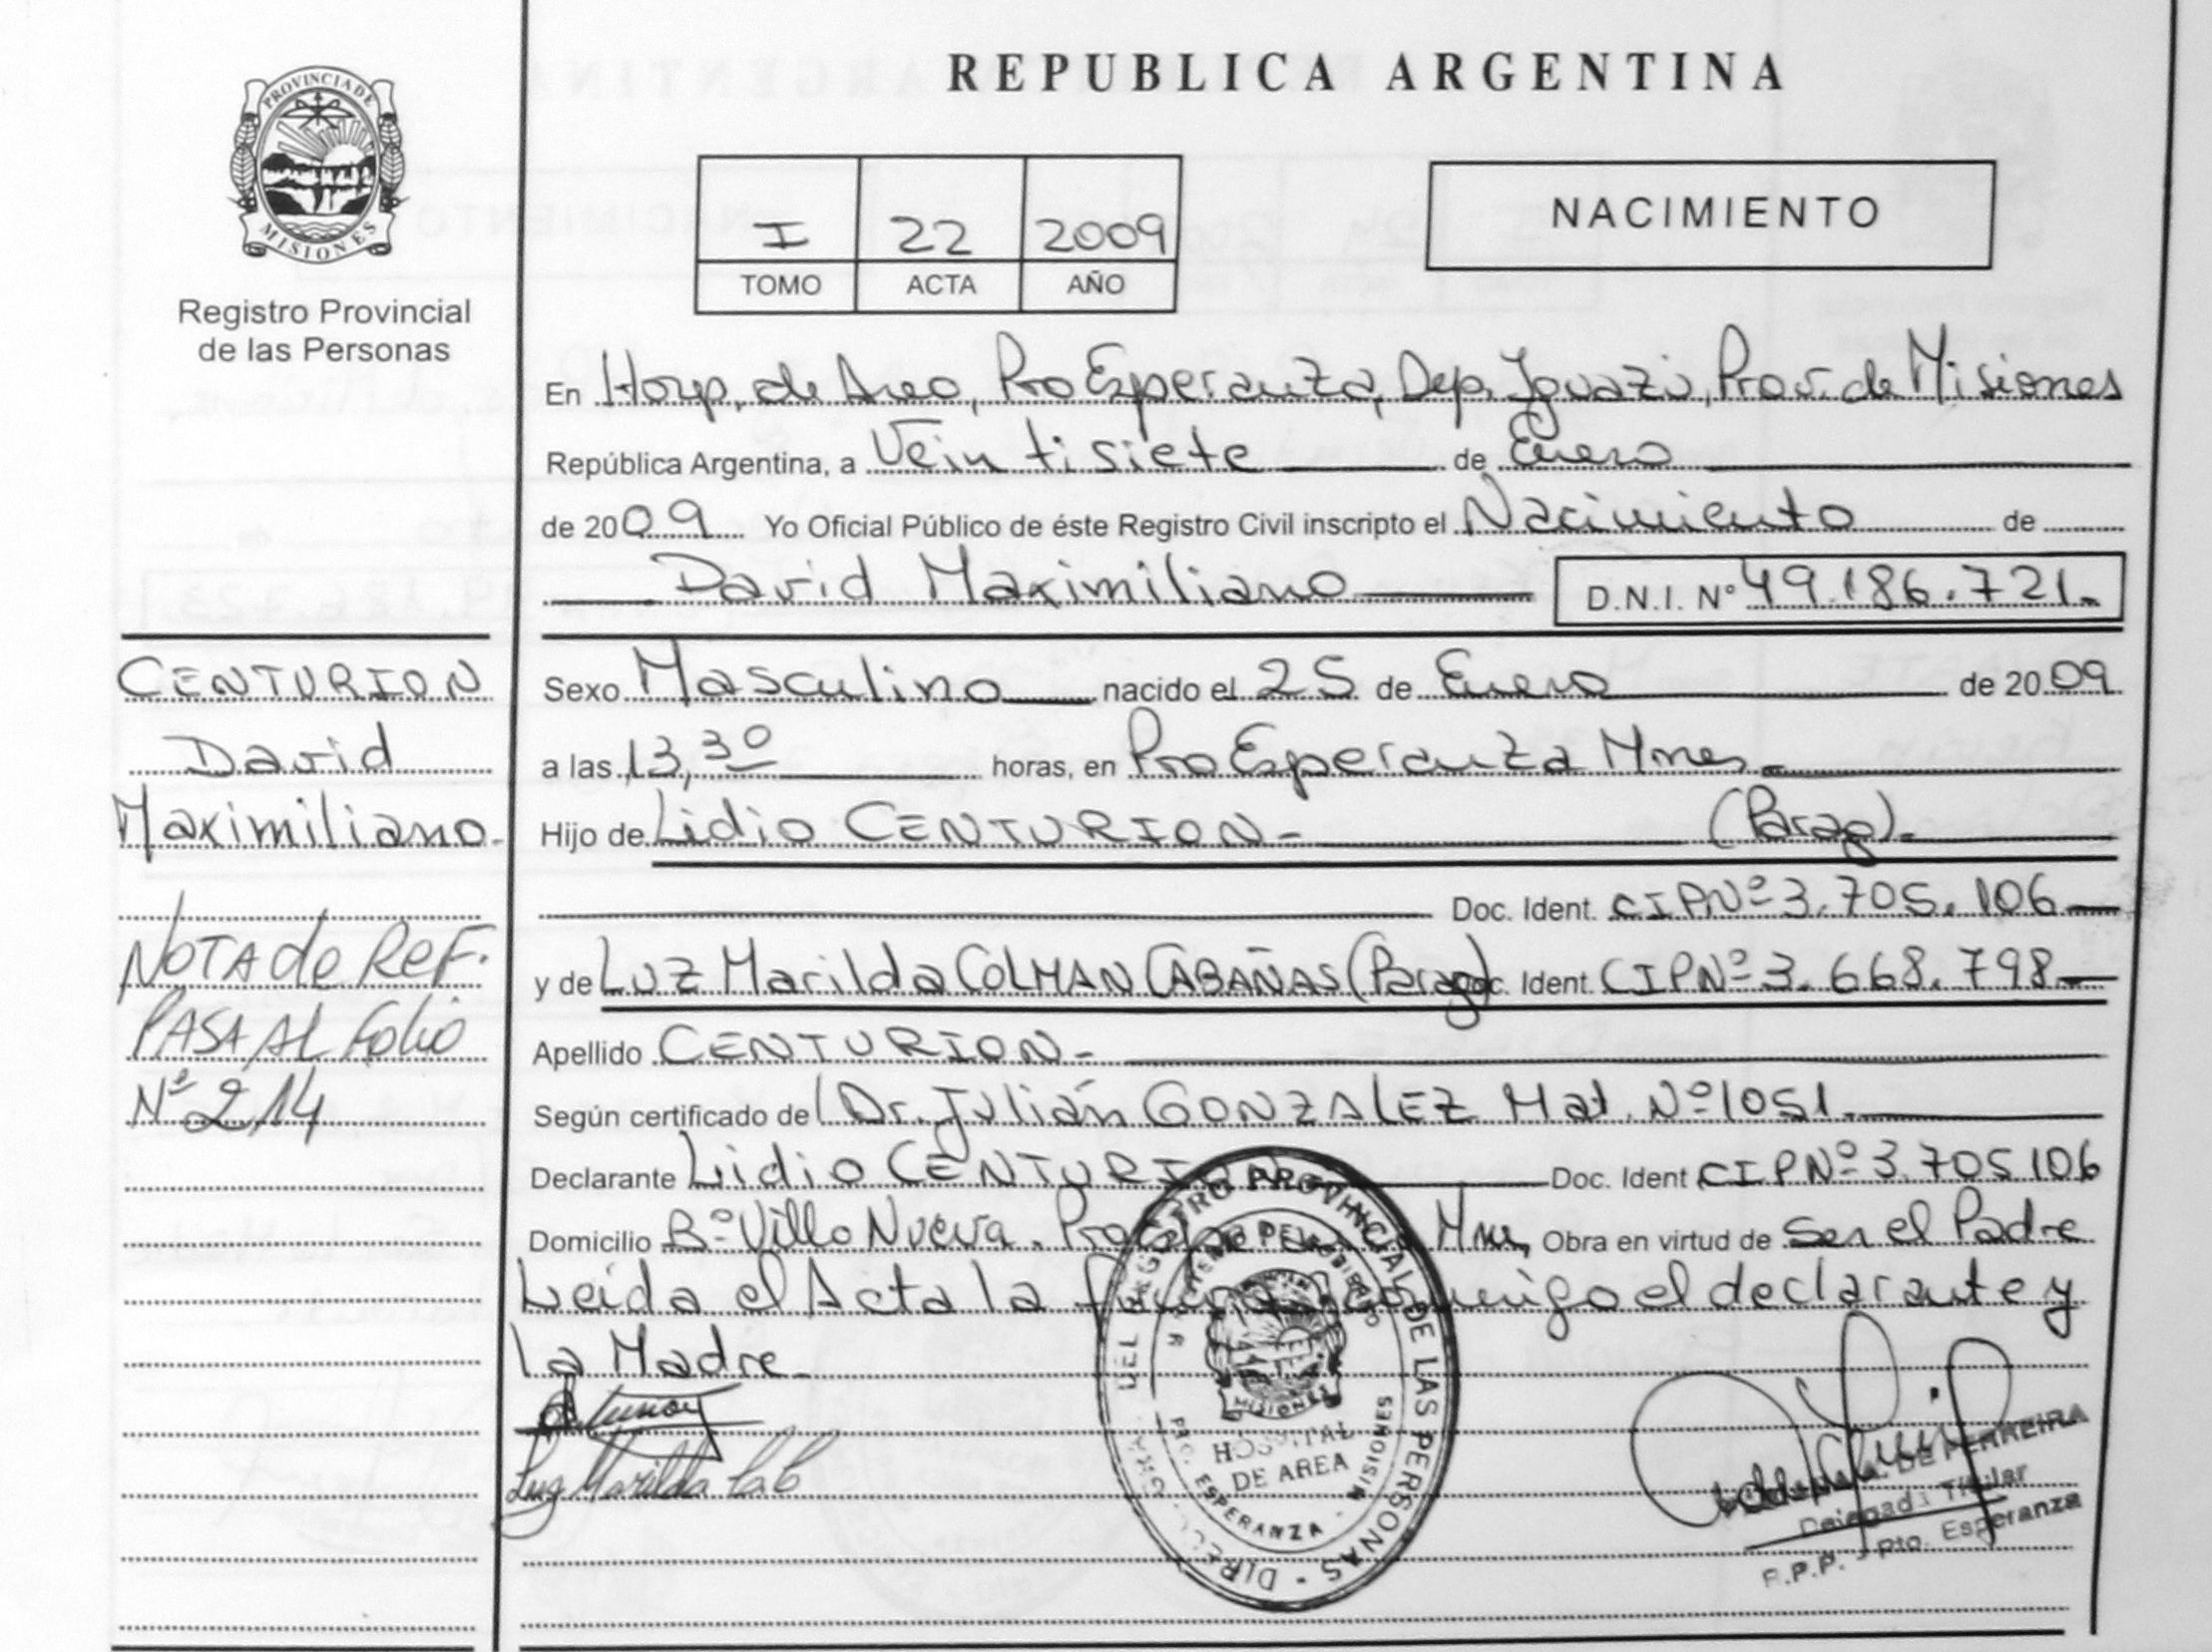 REPUBLICA ARGENTINA
PROVINCIA DE
MISIONES
Registro Provincial
de las Personas
I 22 2009
TOMO ACTA AÑO
NACIMIENTO
En Hosp, de Area, Pto Esperanza, Dep. Iguazú, Prov. de Misiones
República Argentina, a Veintisiete de Enero
de 2009 Yo Oficial Público de éste Registro Civil inscripto el Nacimiento de
David Maximiliano D.N.I. Nº 49.186.721.
CENTURION
David
Maximiliano.
NOTA de REF.
PASA AL Folio
Nº 214
Sexo Masculino nacido el 25 de Enero de 2009
a las 13,30 horas, en Pto Esperanza Mnes.
Hijo de Lidio CENTURION- (Parag).
Doc. Ident. CIPNº 3.705.106
y de Luz Marilda COLMAN CABAÑAS (Parag) Doc. Ident. CIPNº 3.668.798
Apellido CENTURION-
Según certificado de Dr. Julián GONZALEZ Mat. Nº 1051.
Declarante Lidio CENTURI Doc. Ident CIPNº 3.705106
Domicilio Bº Villa Nueva. Pto Mnes, Obra en virtud de Ser el Padre
Leída el Acta la el declarante y
La Madre.
Luz Marilda
REGISTRO PROVINCIAL DE LAS PERSONAS
MISIONES
HOSPITAL
DE AREA
PTO. ESPERANZA - MISIONES
DE FERREIRA
Delegada Titular
R.P.P. - Pto. Esperanza